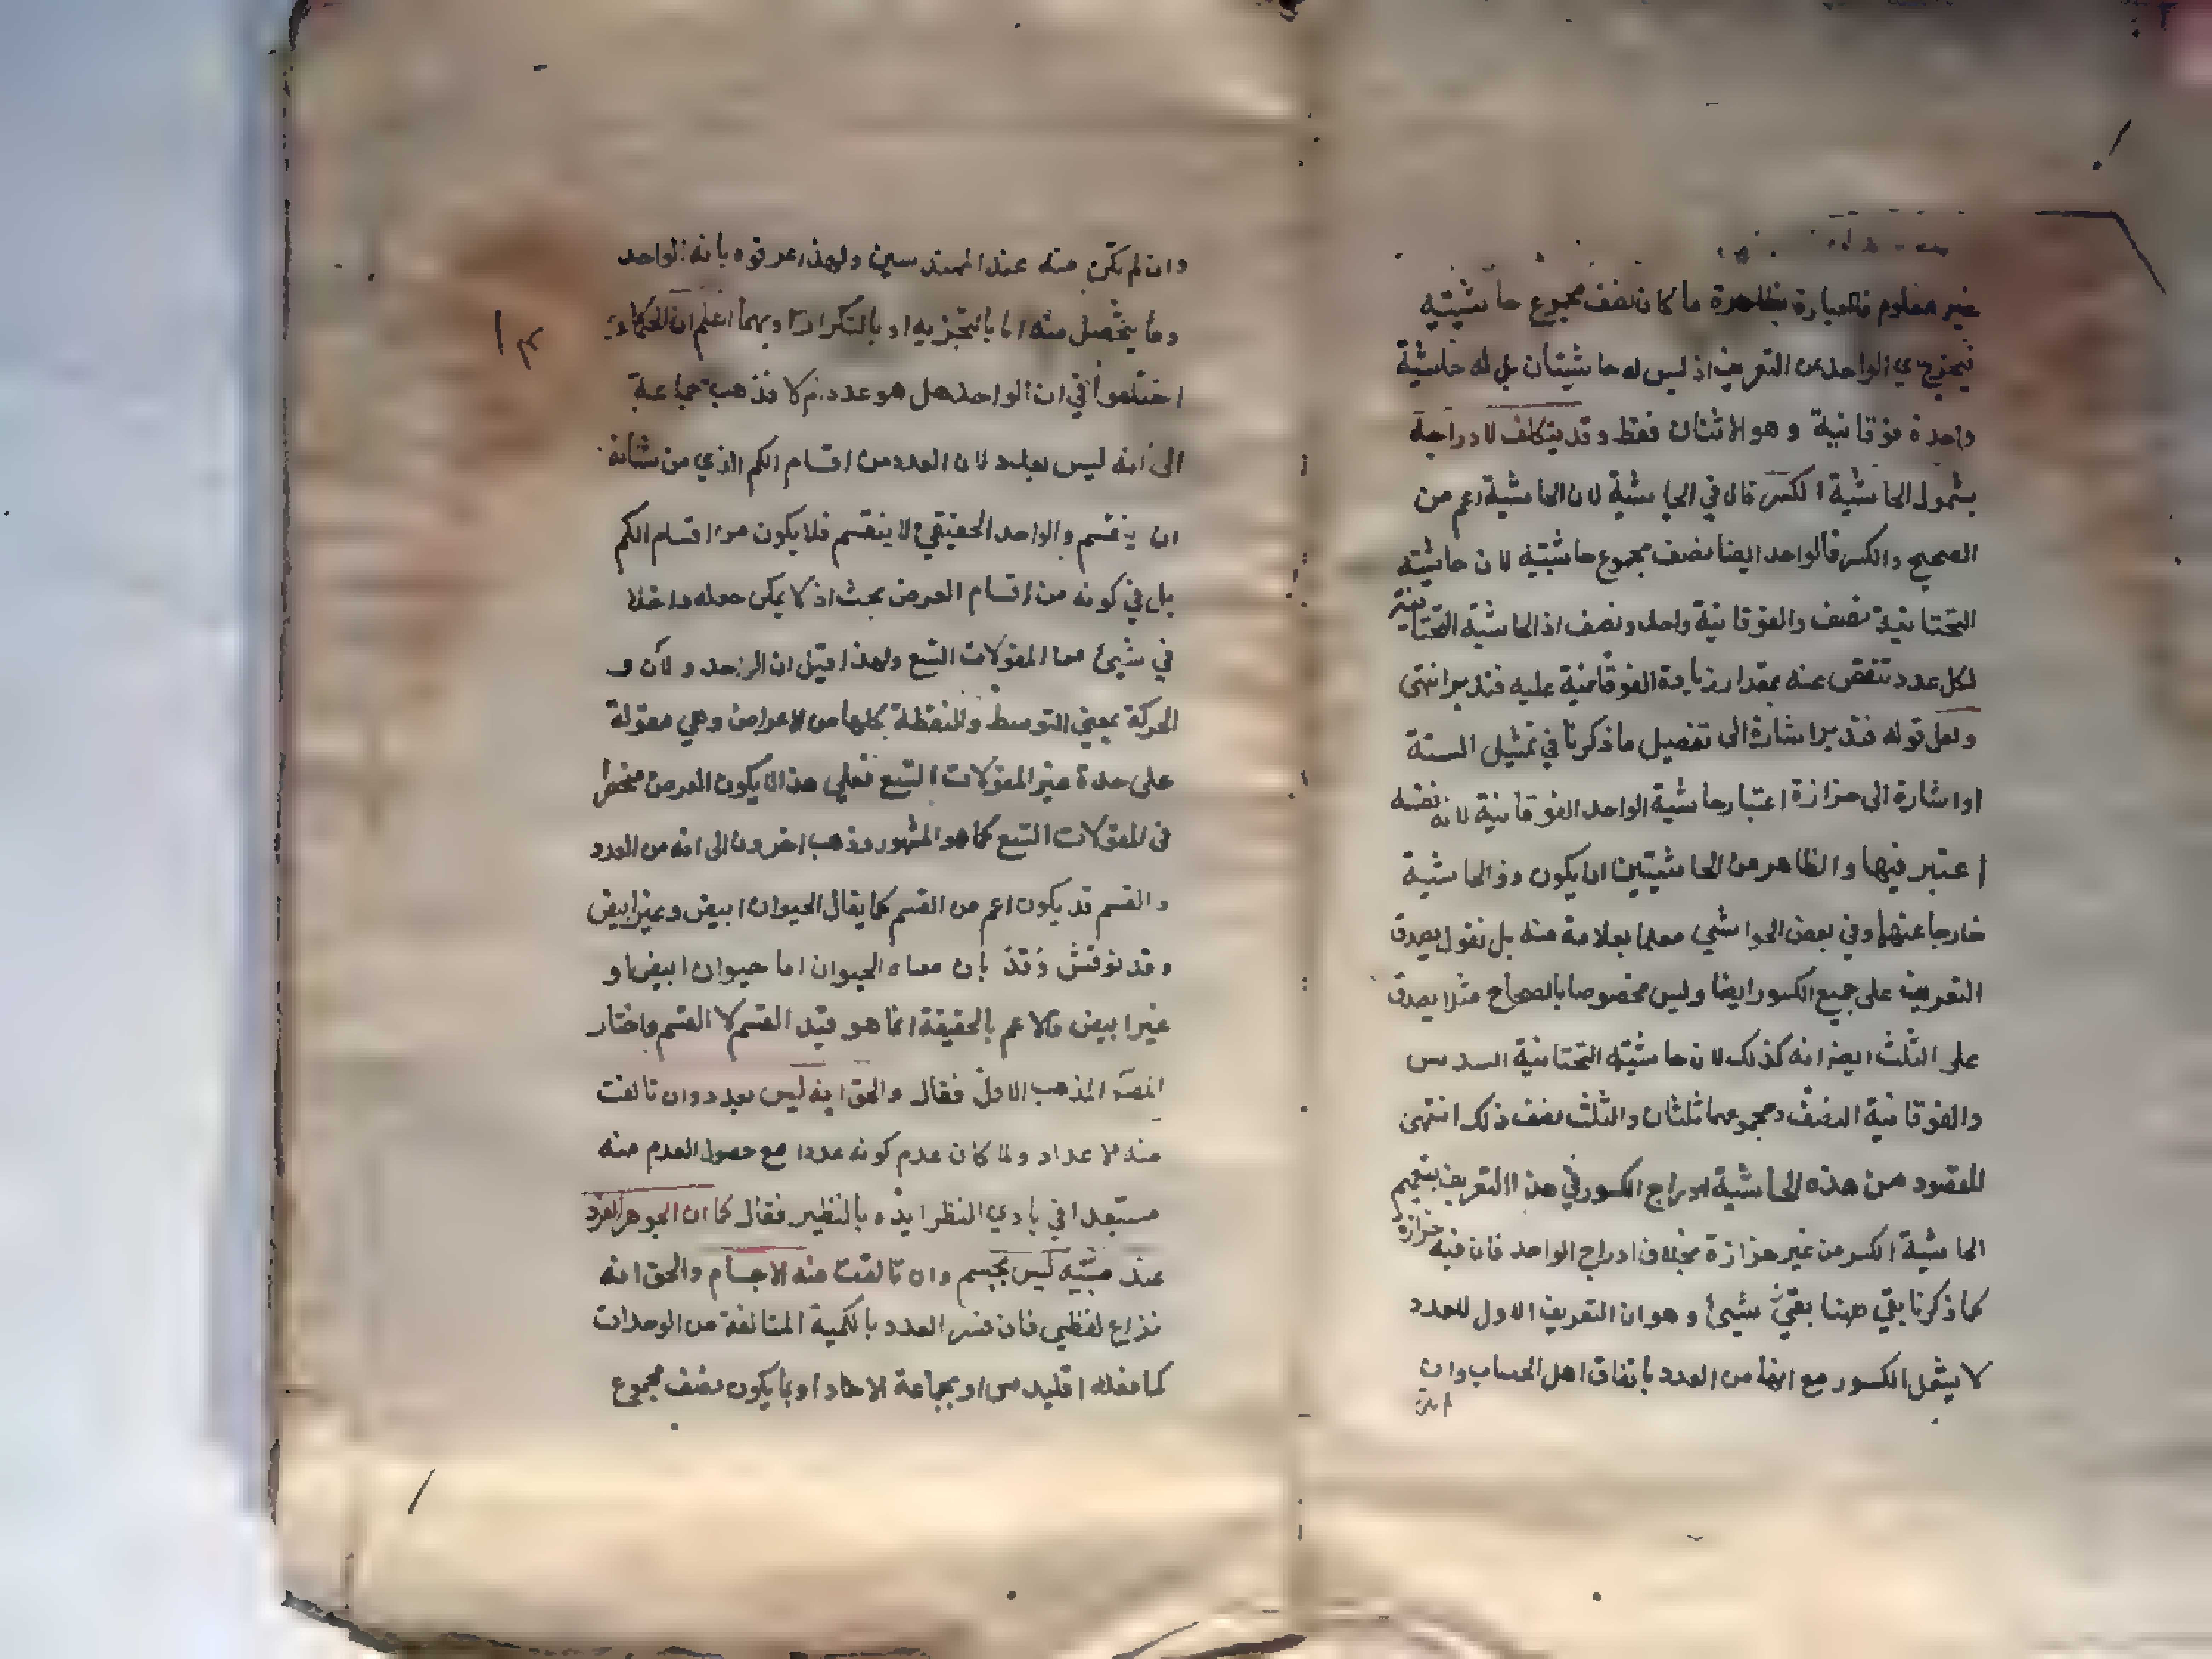 غير معلوم فالعبارة الظاهرة ما كان نصف مجموع حاشيتيه
فيخرج اي الواحد من التعريف اذ ليس له حاشيتان بل له حاشية
واحدة فوقانية وهو الاثنان فقط وقد يتكلف لادراجه
بشمول الحاشية الكسر قال في الحاشية لان الحاشية اعم من
الصحيح والكسر فالواحد ايضا نصف مجموع حاشيتيه لان حاشيته
التحتانية نصف والفوقانية واحد ونصف اذ الحاشية التحتانية
لكل عدد تنقص عنه بمقدار زيادة الفوقانية عليه فتدبر انتهى
ولعل قوله فتدبر اشارة الى تفصيل ما ذكرنا في تمثيل الستة
او اشارة الى حزازة اعتبار حاشية الواحد الفوقانية لانه نفسه
اعتبر فيها والظاهر من الحاشيتين ان يكون ذو الحاشية
خارجا عنهما وفي بعض الحواشي معلما بعلامة منه بل نقول يصدق
التعريف على جميع الكسور ايضا وليس مخصوصا بالصحاح مثلا يصدق
على الثلث ايضا انه كذلك لان حاشيته التحتانية السدس
والفوقانية النصف ومجموعهما ثلثان والثلث نصف ذلك انتهى
المقصود من هذه الحاشية ادراج الكسور في هذا التعريف بتعميم
الحاشية الكسر من غير حزازة بخلاف ادراج الواحد فان فيه حزازة
كما ذكرنا بقي ههنا بقي شيئ وهو ان التعريف الاول للعدد
لا يشمل الكسور مع انها من العدد باتفاق اهل الحساب وان
وان لم تكن منه عند المهندسين ولهذا عرفوه بانه الواحد
وما يتحصل منه اما بالتجزيه او بالتكرار او بهما اعلم ان الحكماء
اختلفوا في ان الواحد هل هو عدد ام لا فذهب جماعة
الى انه ليس بعدد لان العدد من اقسام الكم الذي من شانه
ان ينقسم والواحد الحقيقي لا ينقسم فلا يكون من اقسام الكم
بل في كونه من اقسام العرض بحث اذ لا يمكن جعله داخلا
في شيئ من المقولات التسع ولهذا قيل ان الواحد والآن و
الحركة بمعنى التوسط والنقطة كلها من الاعراض وهي مقولة
على حدة غير المقولات التسع فعلى هذا لا يكون العرض منحصرا
في المقولات التسع كما هو المشهور وذهب اخرون الى انه من العدد
والقسم قد يكون اعم من المقسم كما يقال الحيوان ابيض وغير ابيض
وقد نوقش بان معناه الحيوان اما حيوان ابيض او
غير ابيض فالاعم بالحقيقة انما هو قيد القسم لا القسم واختار
المصـ المذهب الاول فقال والحق انه ليس بعدد وان تالفت
منه الاعداد ولما كان عدم كونه عددا مع حصول العدم منه
مستبعدا في بادي النظر ايده بالنظير فقال كما ان الجوهر الفرد
عند مثبتيه ليس بجسم وان تالفت منه الاجسام والحق انه
نزاع لفظي فان فسر العدد بالكمية المتالفة من الوحدات
كما فعله اقليدس او بجماعة الاحاد او بما يكون نصف مجموع